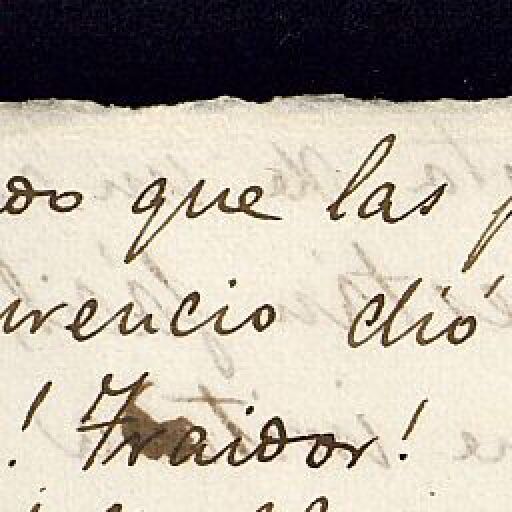 do que las p
urencio dió
! Traidor!